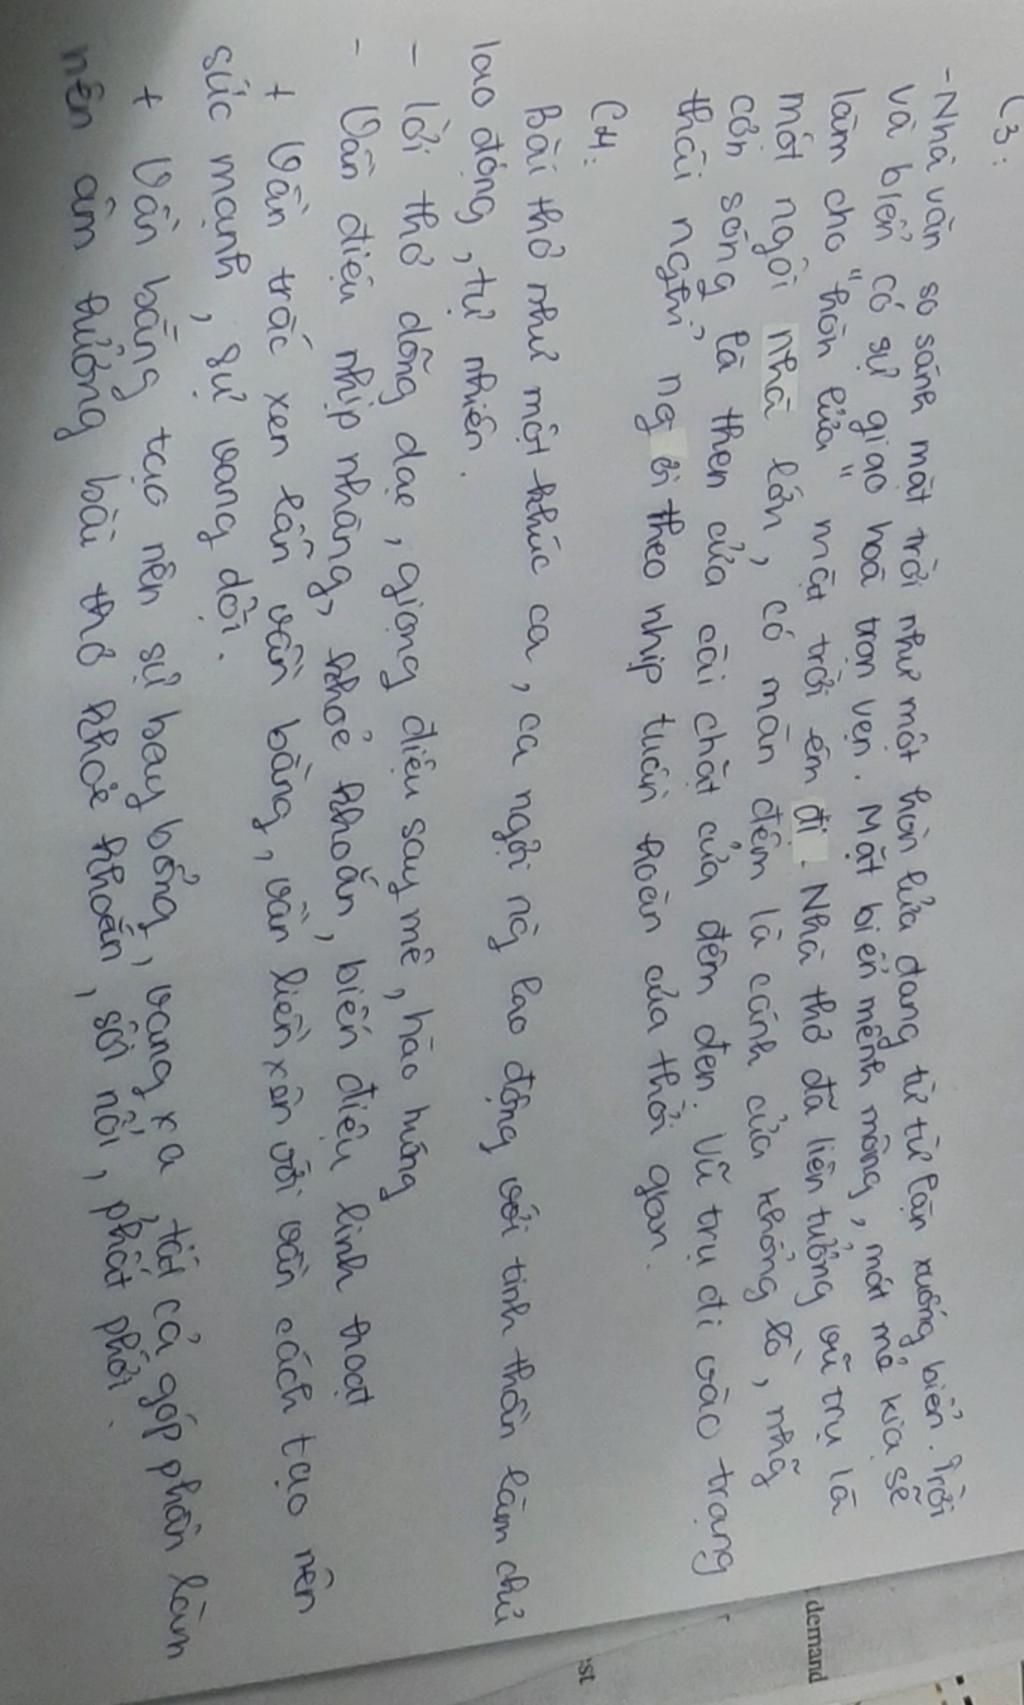 C3:
- Nhà văn so sánh mặt trời như một hòn lửa đang từ từ lặn xuống biển. Trời
và biển có sự giao hoà trọn vẹn. Mặt biển mênh mông, mát mẻ kia sẽ
làm cho "hòn lửa" mặt trời êm đi. Nhà thơ đã liên tưởng vũ trụ là
một ngôi nhà lớn, có màn đêm là cánh cửa khổng lồ, nhữ
cơn sóng là then cửa cài chặt cửa đêm đen. Vũ trụ đi vào trạng
thái nghỉ ng ơi theo nhịp tuần hoàn của thời gian.
C4:
Bài thơ như một khúc ca, ca ngợi ng lao động với tinh thần làm chủ
lao động, tự nhiên.
- lời thơ dõng dạc, giọng điệu say mê, hào hứng
- Vần điệu nhịp nhàng, khoẻ khoắn, biến điệu linh hoạt
+ Vần trắc xen lẫn vần bằng, vần liền xên với vần cách tạo nên
sức mạnh, sự vang dội.
+ Vần bằng tạo nên sự bay bổng, vang xa, tất cả góp phần làm
nên âm hưởng bài thơ khoẻ khoắn, sôi nổi, phất phới.
demand
st